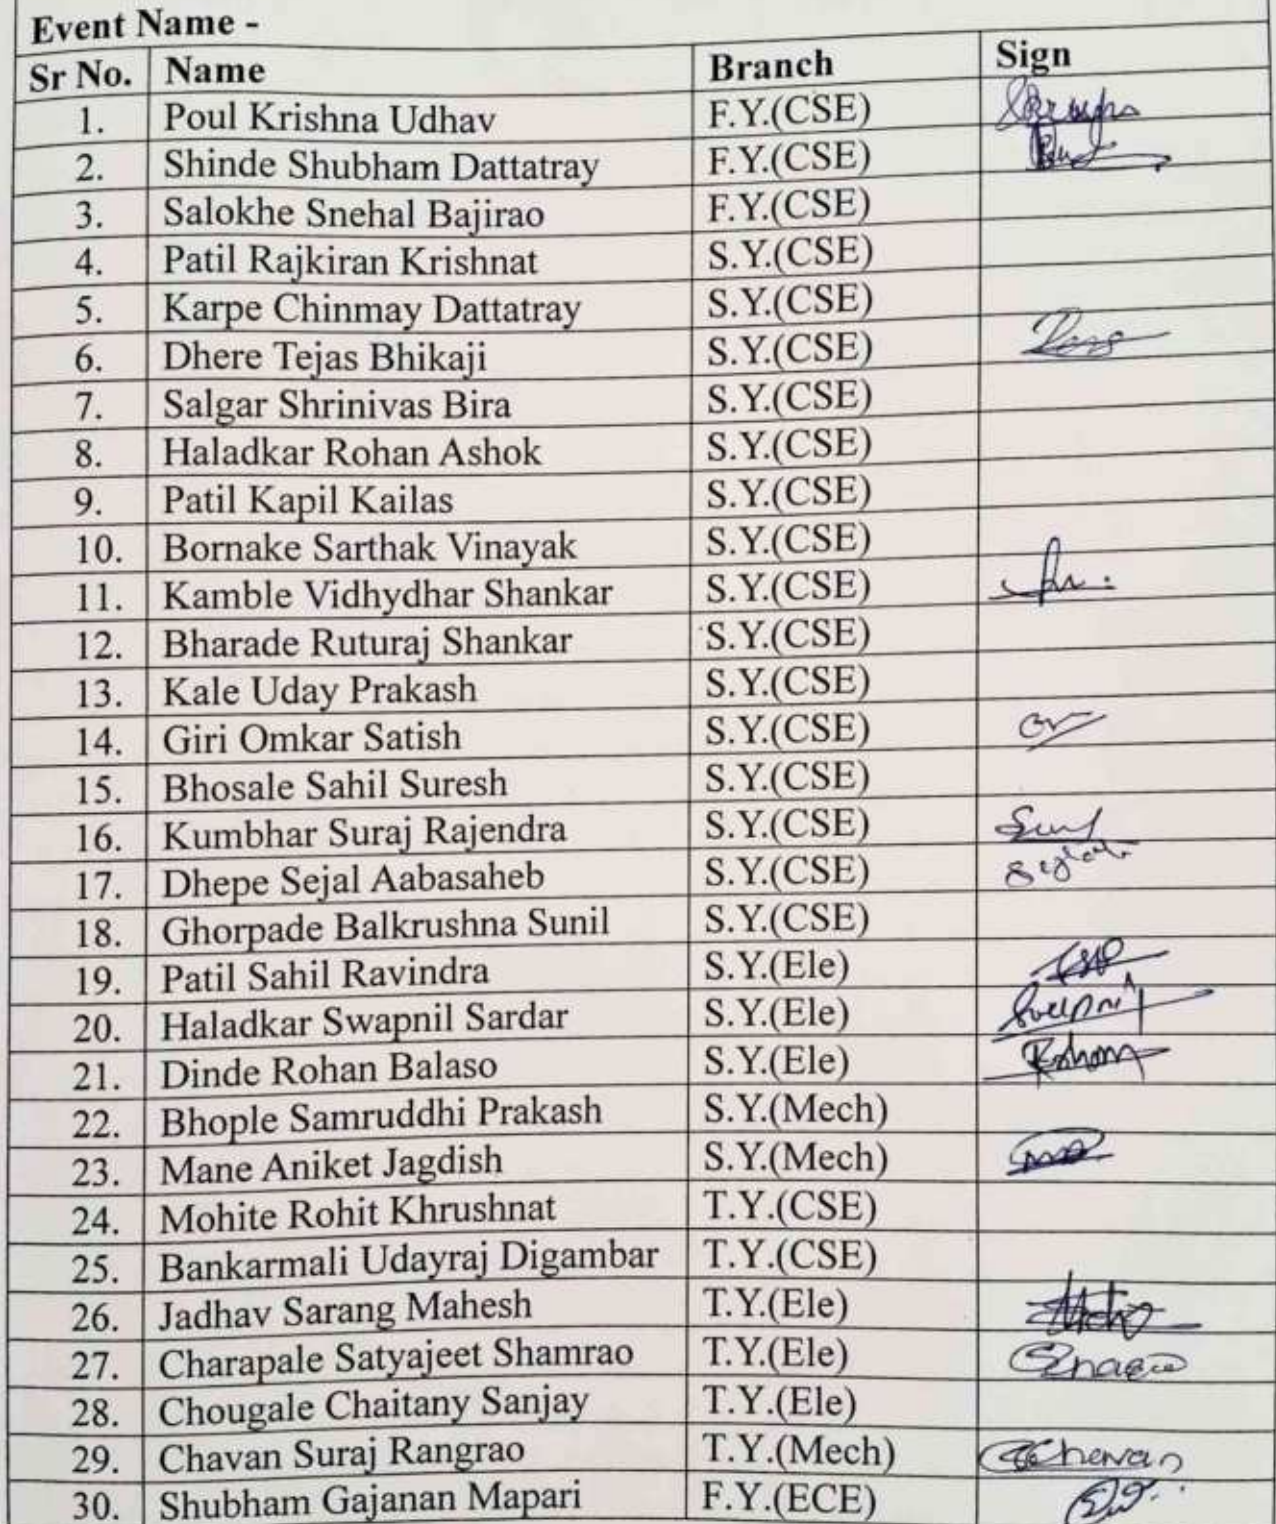 Event Name -
Sr No. Name Branch Sign
1. Poul Krishna Udhav F.Y.(CSE)
2. Shinde Shubham Dattatray F.Y.(CSE)
3. Salokhe Snehal Bajirao F.Y.(CSE)
4. Patil Rajkiran Krishnat S.Y.(CSE)
5. Karpe Chinmay Dattatray S.Y.(CSE)
6. Dhere Tejas Bhikaji S.Y.(CSE)
7. Salgar Shrinivas Bira S.Y.(CSE)
8. Haladkar Rohan Ashok S.Y.(CSE)
9. Patil Kapil Kailas S.Y.(CSE)
10. Bornake Sarthak Vinayak S.Y.(CSE)
11. Kamble Vidhydhar Shankar S.Y.(CSE)
12. Bharade Ruturaj Shankar S.Y.(CSE)
13. Kale Uday Prakash S.Y.(CSE)
14. Giri Omkar Satish S.Y.(CSE)
15. Bhosale Sahil Suresh S.Y.(CSE)
16. Kumbhar Suraj Rajendra S.Y.(CSE)
17. Dhepe Sejal Aabasaheb S.Y.(CSE)
18. Ghorpade Balkrushna Sunil S.Y.(CSE)
19. Patil Sahil Ravindra S.Y.(Ele)
20. Haladkar Swapnil Sardar S.Y.(Ele)
21. Dinde Rohan Balaso S.Y.(Ele)
22. Bhople Samruddhi Prakash S.Y.(Mech)
23. Mane Aniket Jagdish S.Y.(Mech)
24. Mohite Rohit Khrushnat T.Y.(CSE)
25. Bankarmali Udayraj Digambar T.Y.(CSE)
26. Jadhav Sarang Mahesh T.Y.(Ele)
27. Charapale Satyajeet Shamrao T.Y.(Ele)
28. Chougale Chaitany Sanjay T.Y.(Ele)
29. Chavan Suraj Rangrao T.Y.(Mech)
30. Shubham Gajanan Mapari F.Y.(ECE)